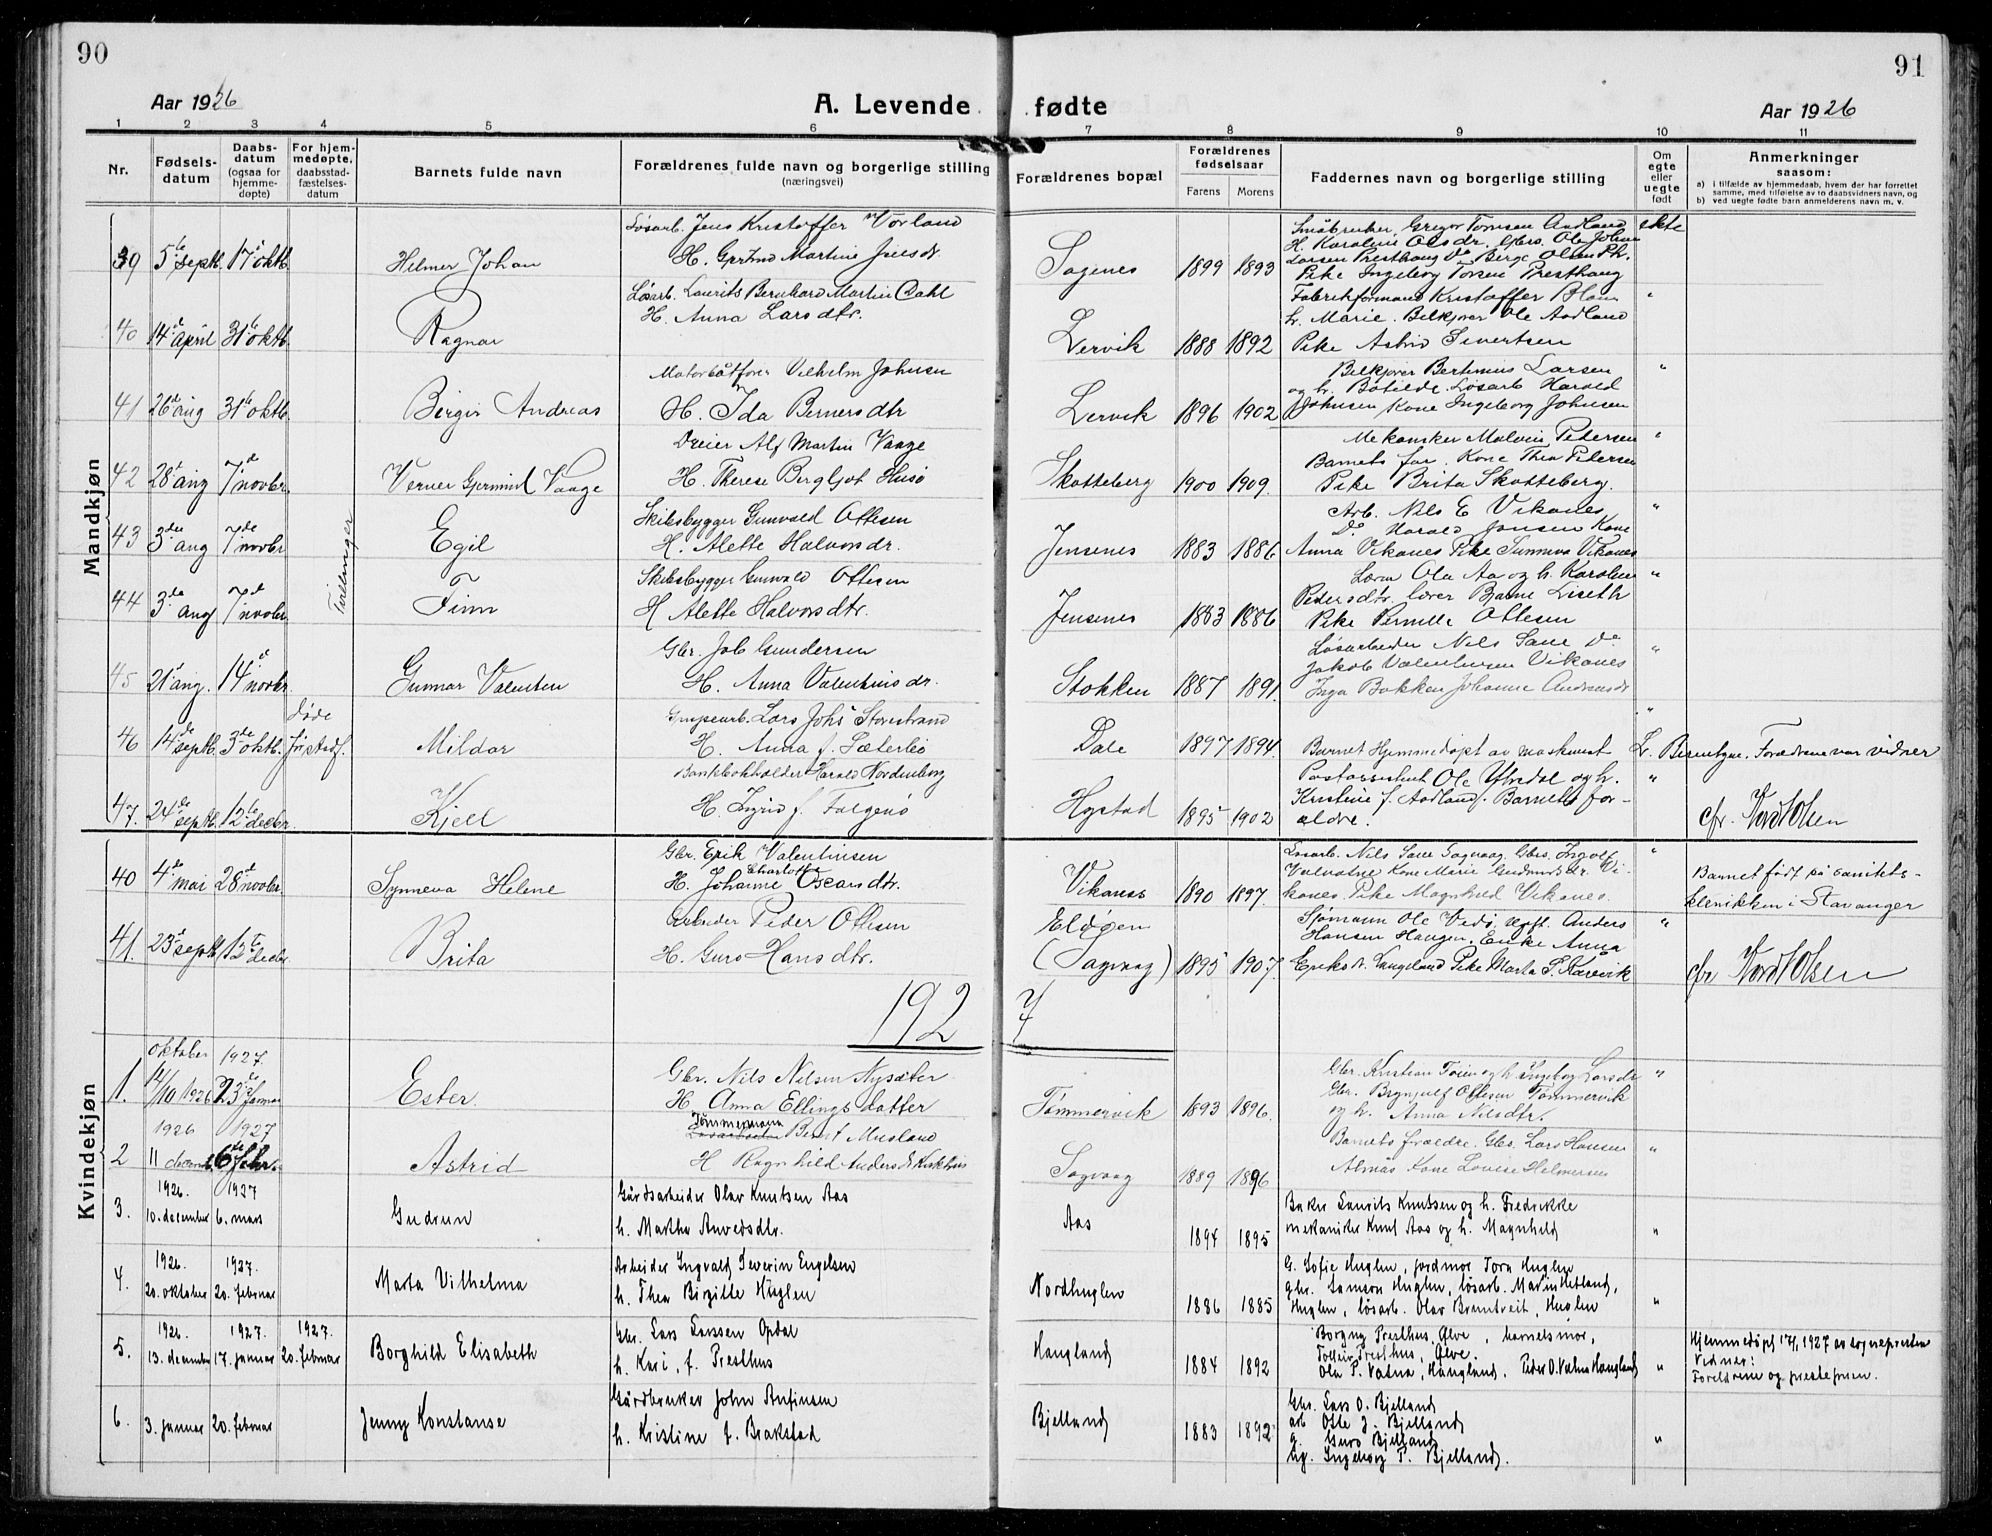 90
91
Aar 1926
A. Levende fødte
Aar 1926
1 2 3 4 5 6 7 8 9 10 11
Nr.
Fødsels-
datum
Daabs-
datum
(ogsaa for
hjemme-
døpte)
For hjem-
medøpte,
daabsstad-
fæstelses-
datum
Barnets fulde navn
Forældrenes fulde navn og borgerlige stilling
(næringsvei)
Forældrenes bopæl
Forældrenes
fødselsaar
Farens Morens
Faddernes navn og borgerlige stilling
Om
egte
eller
uegte
født
Anmerkninger
saasom:
a) i tilfælde av hjemmedaab, hvem der har forrettet
samme, med tilføielse av to daabsvidners navn, og
b) ved uegte fødte barn anmelderens navn m. v.
Mandkjøn
39 5te septb. 17de oktb. Helmer Johan
Løsarb. Jens Kristoffer Vorland
H. Gjertrud Martine Jensdr.
Sagenes 1899 1893
Småbruker Gregor Tomsen Aadland
H. Karoline Olsdr. Gbrs. Ole Johan
Larsen Presthaug Do Berge Olsen Ph.
Pike Ingeborg Torsen Presthaug
ekte
40 14de april 31te oktb. Ragnar
Løsarb. Laurits Bernhard Martin Dahl
H. Anna Larsdtr.
Lervik 1888 1892
Fabrikformand Kristoffer Blom
h. Marie. Bilkjører Ole Aadland
Pike Astrid Sivertsen
"
41 26de aug 31te oktb. Birger Andreas
Motorbåtfører Vilhelm Johnsen
H. Ida Bernersdtr
Lervik 1896 1902
Bilkjører Bertinius Larsen
og h. Botilde. Løsarb Harald
Johnsen Kone Ingeborg Johnsen
"
42 28de aug 7de novbr. Verner Gjermund Vaage
Dreier Alf Martin Vaage
H. Therese Bergljot Husø
Skotteberg 1900 1909.
Mekaniker Malvin Petersen
Barnets far. Kone Thea Petersen
Pike Brita Skotteberg.
"
43 3die aug 7de novbr Tvillinger Egil
Skibsbygger Gunvald Ottesen
H. Alette Halvorsdr.
Jensenes 1883 1886
Arb. Nils E Vikanes
Do. Harald Jensen Kone
Anna Vikanes Pike Sunneva Vikanes
"
44 3die aug 7de novbr. Finn
Skibsbygger Gunvald Ottesen
H Alette Halvorsdtr.
Jensenes 1883 1886
Lærer Ole Aa og h. Karoline
Pedersdtr. Lærer Bjarne Liseth
Pike Pernille Ottesen
"
45 21de aug. 14de novbr. Gunnar Valentin
Gbr. Job Gundersen
H. Anna Valentinsdr.
Stokken 1887 1891
Løsarbeider Nils Sane Do
Jakob Valentinsen Vikanes
Inga Bakken Johanne Andreasdr
"
46 14de septb. 3die oktb. døde
Mildor
Grubearb. Lars Johs Storstrand
H. Anna f. Sæterbø
Dale 1897 1894.
Barnet hjemmedøpt av maskinist
L. Berentzen. Forældrene var vidner
"
47. 24de septb. 12te decbr. Kjell
Bankbokholder Harald Nordenborg
H. Ingrid f. Folgerø
Hystad 1895 1902
Postassistent Ole Ytredal og h.
Kristine f. Aadland. Barnets for-
ældre.
"
cfr. Kordt Olsen
Kvindekjøn
40 4de mai 28de novbr. Synneva Helene
Gbr. Erik Valentinsen
Charlotte
H. Johanne Oscarsdtr.
Vikanes 1890 1897.
Løsarb. Nils Sane Sagvaag Gbrs. Ingolf
Valvatne Kone Marie Gudmundsdr Vi-
kanes. Pike Magnhild Vikanes.
"
Barnet født på sanitets-
klinikken i Stavanger
41. 23de septb. 12te decbr. Brita
Arbeider Peder Ottesen
H. Guro Hansdtr.
Eldøen
(Sagvaag) 1895 1907
Sjømann Ole Vedø. Ugft. Anders
Hansen Haugen. Enke Anna
Eriksd. Langeland Pike Marta S. Kårevik
"
cfr Kordt Olsen
1927
oktober 1927.
1. 14/10 1926 23de januar Ester
Gbr. Nils Nilsen Nysæter
H. Anna Ellingsdatter
Tømmervik 1893 1896.
Gbr. Kristian Toien og h. Ingeborg Larsdr
Gbr. Brynjulf Ottesen Tømmervik
og h. Anna Nilsdtr.
"
1926 1927
2 11 decemb. 6te febr. Astrid
Tømmermann
Løsarbeider Bernt Musland
H Ragnhild Andersdr Kirkhus
Sagvaag 1889 1896
Barnets forældre. Gbr. Lars Hansen
Almås Kone Lovise Helmersen
"
1926. 1927
3. 10. december 6. mars Gudrun
Gårdsarbeider Olav Knutsen Aas
h. Martha Anvedsdtr.
Aas 1894 1895
Baker Laurits Knutsen og h. Fredrikke
mekaniker Knut Aas og h. Magnhild
"
1926. 1927.
4. 20. oktober 20. februar Marta Vilhelma
Arbeider Ingvald Severin Engelsen
h. Thea Birgitte Huglen
Nordhuglen 1886 1885
G. Sofie Huglen, jordmor Torn Huglen
gbr. Samson Huglen, løsarb. Marin Hetland,
Huglen, løsarb. Olav Brantveit, Huglen
"
1926 1927. 1927.
5. 13. december 17. januar 20. februar Borghild Elisabeth
Gbr. Lars Larssen Opdal
h. Kari, f. Presthus
Haugland 1884 1892
Borgny Presthus, Ølve, barnets mor,
Tolleiv Presthus, Ølve.
Ola P. Vatna, Haugland. Peder O. Vatna Haugland
"
Hjemmedøpt 17/1 1927 av sognepresten
Vidner:
Foreldrene og prestefruen.
6. 3. januar 20. februar Jenny Konstanse
Gårdbruker John Anfinsen
h. Kristine f. Brakstad
Bjelland 1883 1892
Gbr. Lars O. Bjelland
arb Otte J. Bjelland
g. Guro Bjelland
ug. Ingeborg P. Bjelland.
"